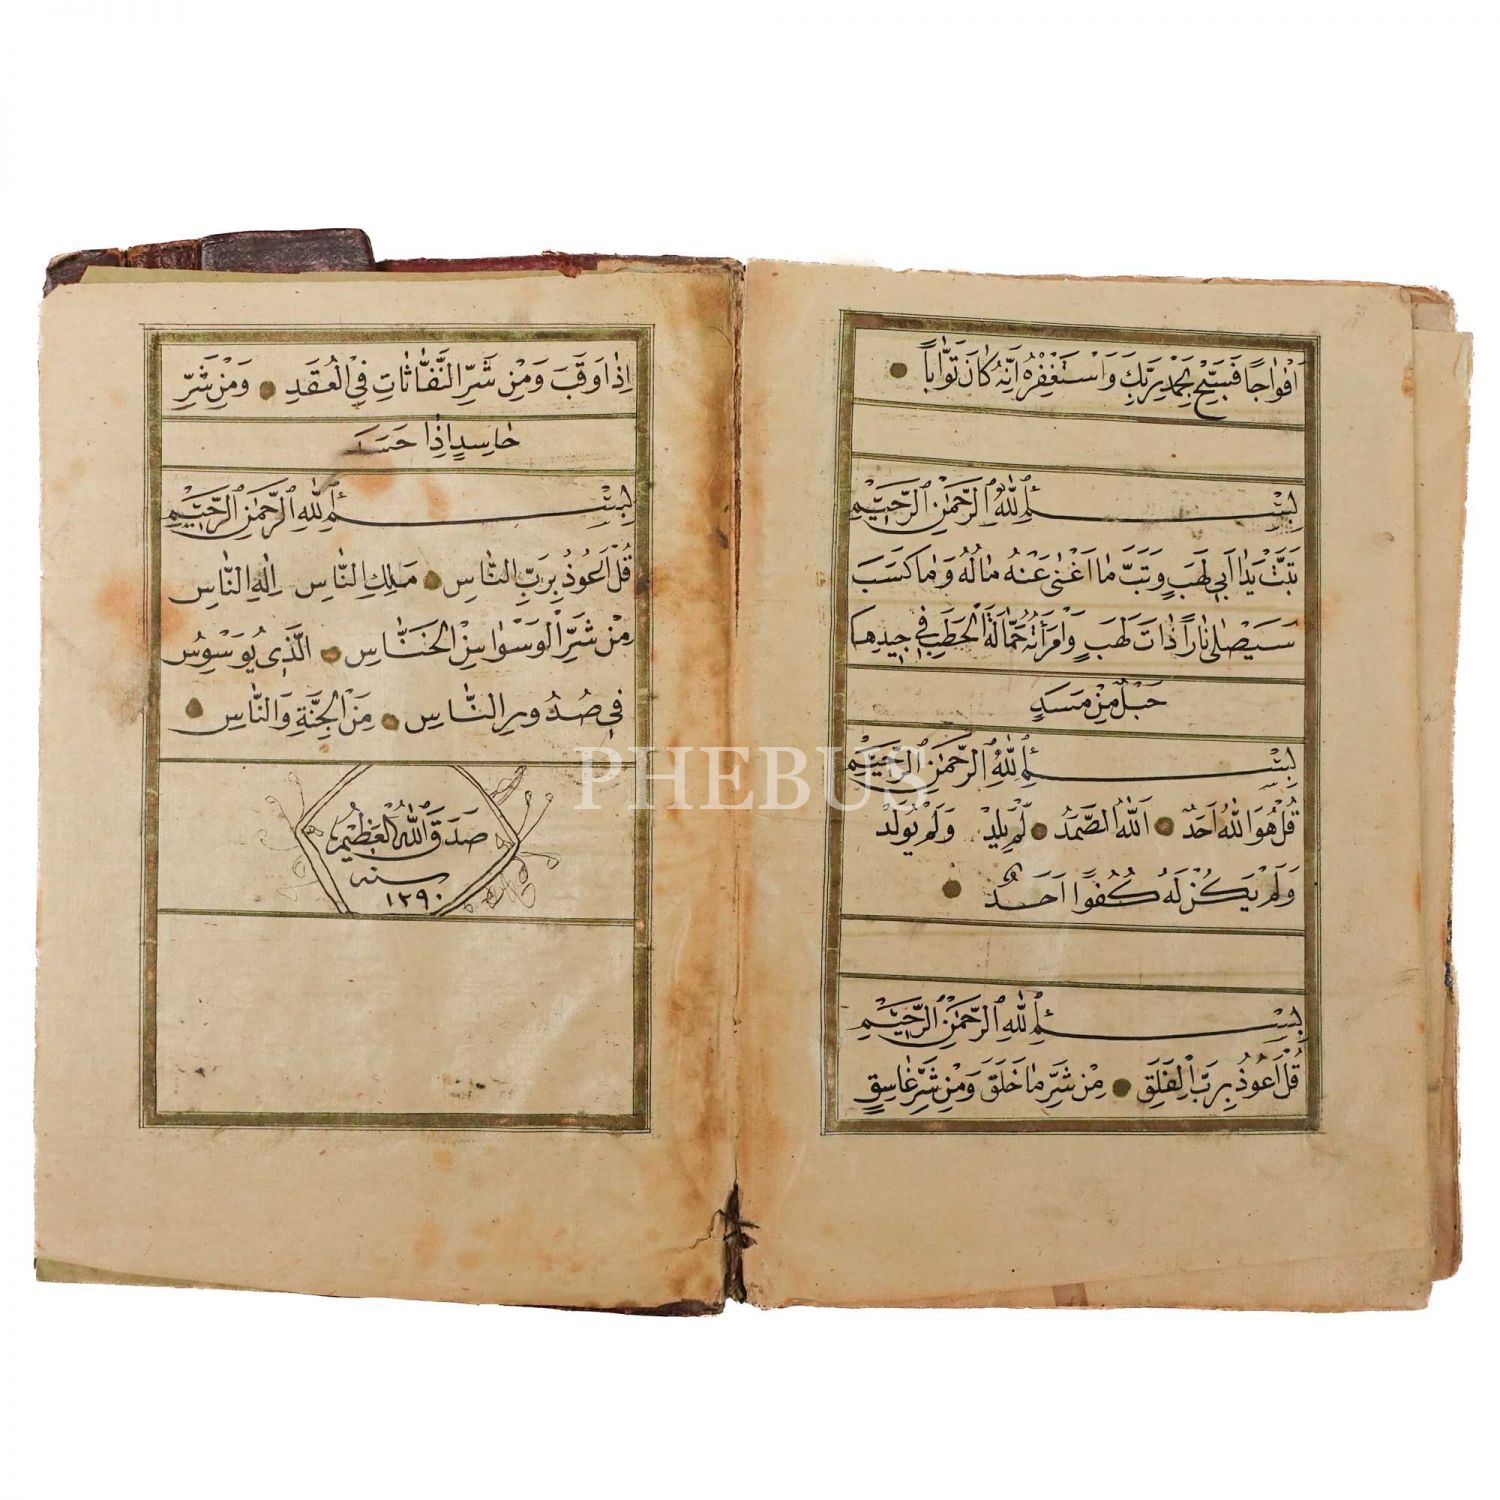 اَفْوَاجًا فَسَبِّحْ بِحَمْدِ رَبِّكَ وَاسْتَغْفِرْهُ اِنَّهُ كَانَ تَوَّاباً
بِسْمِ اللّٰهِ الرَّحْمٰنِ الرَّحٖيمِ
تَبَّتْ يَدَا اَبٖي لَهَبٍ وَتَبَّ مَا اَغْنٰى عَنْهُ مَالُهُ وَمَا كَسَبَ
سَيَصْلٰى نَاراً ذَاتَ لَهَبٍ وَامْرَأَتُهُ حَمَّالَةَ الْحَطَبِ فٖي جٖيدِهَا
حَبْلٌ مِنْ مَسَدٍ
بِسْمِ اللّٰهِ الرَّحْمٰنِ الرَّحٖيمِ
قُلْ هُوَ اللّٰهُ اَحَدٌ اَللّٰهُ الصَّمَدُ لَمْ يَلِدْ وَلَمْ يُولَدْ
وَلَمْ يَكُنْ لَهُ كُفُوًا اَحَدٌ
بِسْمِ اللّٰهِ الرَّحْمٰنِ الرَّحٖيمِ
قُلْ اَعُوذُ بِرَبِّ الْفَلَقِ مِنْ شَرِّ مَا خَلَقَ وَمِنْ شَرِّ غَاسِقٍ
اِذَا وَقَبَ وَمِنْ شَرِّ النَّفَّاثَاتِ فِي الْعُقَدِ وَمِنْ شَرِّ
حَاسِدٍ اِذَا حَسَدَ
بِسْمِ اللّٰهِ الرَّحْمٰنِ الرَّحٖيمِ
قُلْ اَعُوذُ بِرَبِّ النَّاسِ مَلِكِ النَّاسِ اِلٰهِ النَّاسِ
مِنْ شَرِّ الْوَسْوَاسِ الْخَنَّاسِ الَّذٖي يُوَسْوِسُ
فٖي صُدُورِ النَّاسِ مِنَ الْجِنَّةِ وَالنَّاسِ
صَدَقَ اللّٰهُ الْعَظٖيمُ
سنه
١٢٩٠
PHEBUS